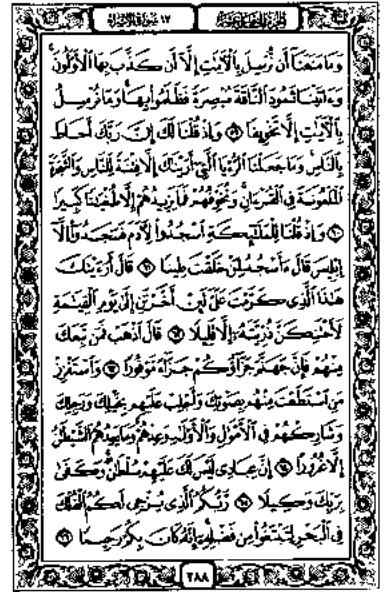 الجزء الخامس عشر ١٧ سورة الإسراء
وَمَا مَنَعَنَآ أَن نُّرْسِلَ بِٱلْءَايَٰتِ إِلَّآ أَن كَذَّبَ بِهَا ٱلْأَوَّلُونَ
وَءَاتَيْنَا ثَمُودَ ٱلنَّاقَةَ مُبْصِرَةً فَظَلَمُوا۟ بِهَا وَمَا نُرْسِلُ
بِٱلْءَايَٰتِ إِلَّا تَخْوِيفًا ٥٩ وَإِذْ قُلْنَا لَكَ إِنَّ رَبَّكَ أَحَاطَ
بِٱلنَّاسِ وَمَا جَعَلْنَا ٱلرُّءْيَا ٱلَّتِىٓ أَرَيْنَٰكَ إِلَّا فِتْنَةً لِّلنَّاسِ وَٱلشَّجَرَةَ
ٱلْمَلْعُونَةَ فِى ٱلْقُرْءَانِ وَنُخَوِّفُهُمْ فَمَا يَزِيدُهُمْ إِلَّا طُغْيَٰنًا كَبِيرًا
٦٠ وَإِذْ قُلْنَا لِلْمَلَٰٓئِكَةِ ٱسْجُدُوا۟ لِءَادَمَ فَسَجَدُوٓا۟ إِلَّآ
إِبْلِيسَ قَالَ ءَأَسْجُدُ لِمَنْ خَلَقْتَ طِينًا ٦١ قَالَ أَرَءَيْتَكَ
هَٰذَا ٱلَّذِى كَرَّمْتَ عَلَىَّ لَئِنْ أَخَّرْتَنِ إِلَىٰ يَوْمِ ٱلْقِيَٰمَةِ
لَأَحْتَنِكَنَّ ذُرِّيَّتَهُۥٓ إِلَّا قَلِيلًا ٦٢ قَالَ ٱذْهَبْ فَمَن تَبِعَكَ
مِنْهُمْ فَإِنَّ جَهَنَّمَ جَزَآؤُكُمْ جَزَآءً مَّوْفُورًا ٦٣ وَٱسْتَفْزِزْ
مَنِ ٱسْتَطَعْتَ مِنْهُم بِصَوْتِكَ وَأَجْلِبْ عَلَيْهِم بِخَيْلِكَ وَرَجِلِكَ
وَشَارِكْهُمْ فِى ٱلْأَمْوَٰلِ وَٱلْأَوْلَٰدِ وَعِدْهُمْ وَمَا يَعِدُهُمُ ٱلشَّيْطَٰنُ
إِلَّا غُرُورًا ٦٤ إِنَّ عِبَادِى لَيْسَ لَكَ عَلَيْهِمْ سُلْطَٰنٌ وَكَفَىٰ
بِرَبِّكَ وَكِيلًا ٦٥ رَّبُّكُمُ ٱلَّذِى يُزْجِى لَكُمُ ٱلْفُلْكَ
فِى ٱلْبَحْرِ لِتَبْتَغُوا۟ مِن فَضْلِهِۦٓ إِنَّهُۥ كَانَ بِكُمْ رَحِيمًا ٦٦
٢٨٨